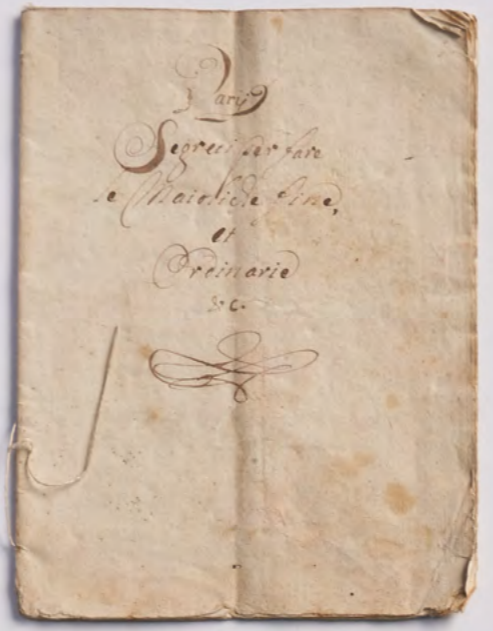 Varij
Segreti per fare
le Maioliche fine,
et
Ordinarie
&c.